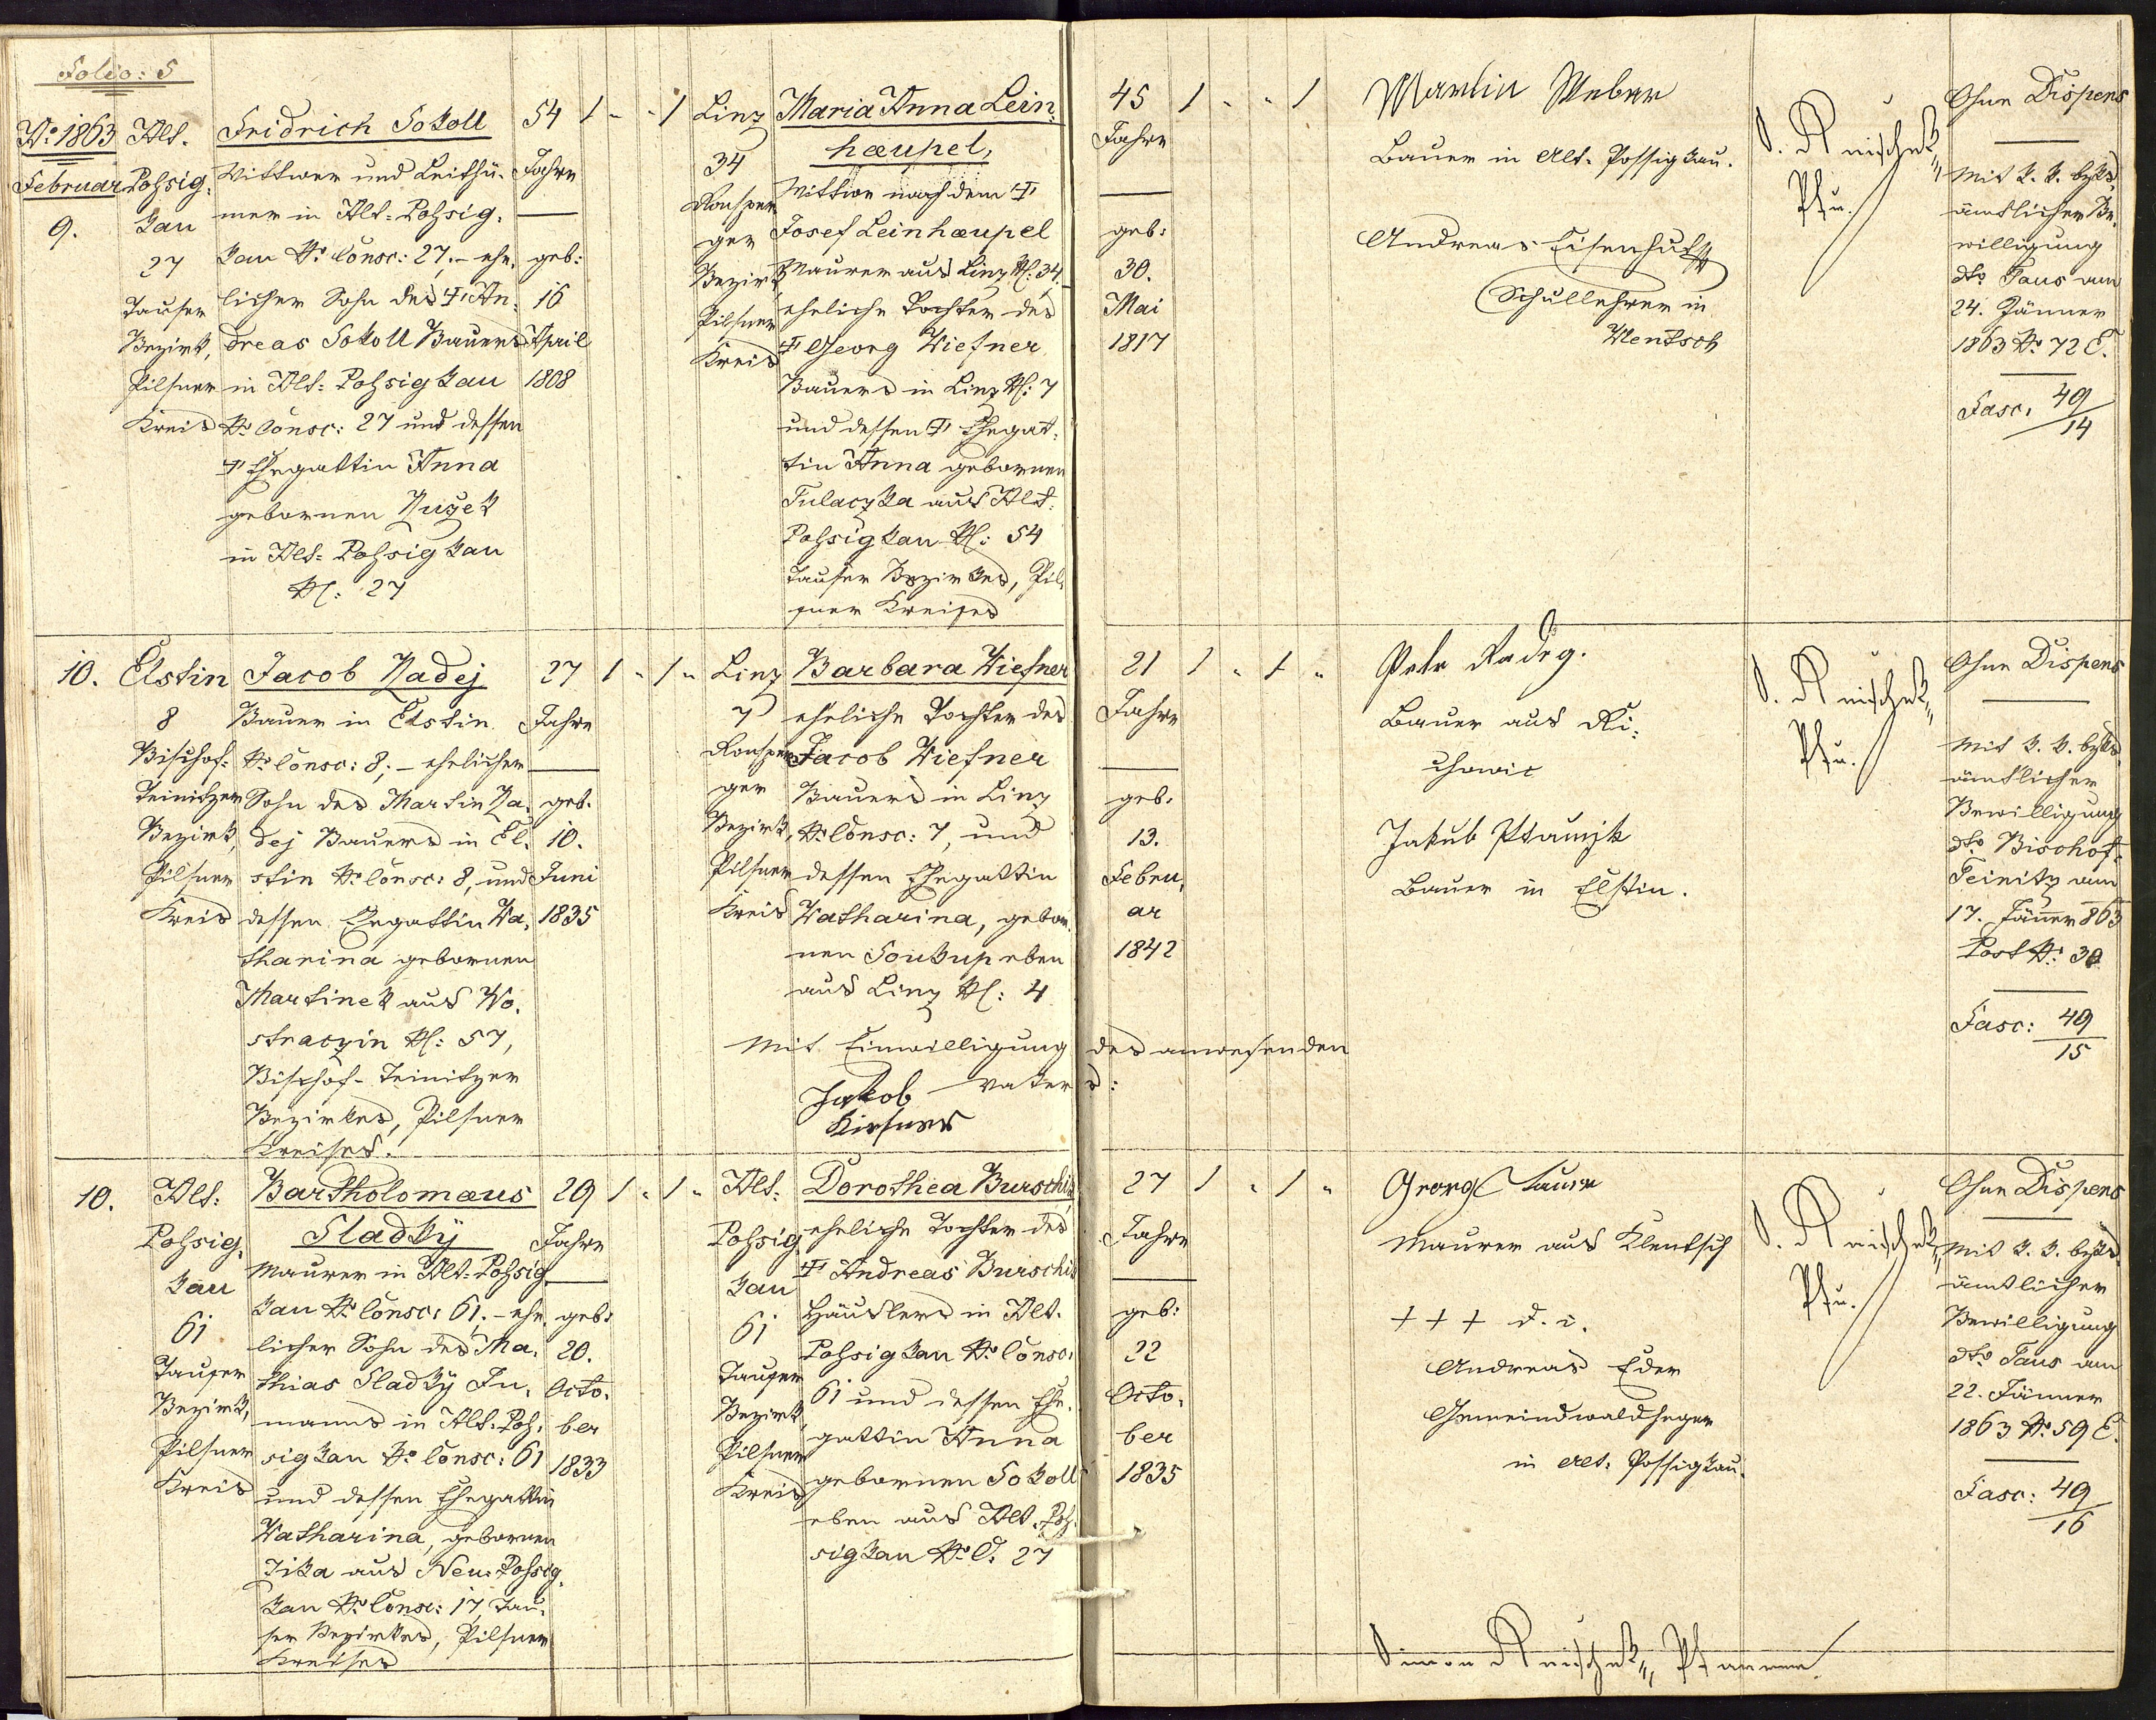 Folio: 5
No 1863
Februar
9.
Alt-
Pohsig-
kau
27
Tauser
Bezirk,
Pilsner
Kreis
Fridrich Sokoll
Wittwer und Leithü-
mer in Alt-Pohsig-
kau No Consc: 27.- ehe-
licher Sohn des † An-
dreas Sokoll Bauers
in Alt-Pohsigkau
No Consc: 27 und dessen
† Ehegattin Anna
gebornen
in Alt-Pohsigkau
NC: 27
54
Jahre
geb:
16
April
1808
1 - - 1
Linz
34
Ronsper-
ger
Bezirk
Pilsner
Kreis
Maria Anna Lein-
hæupel,
Wittwe nach dem †
Josef Leinhæupel
Maurer aus Linz NC: 34.-
eheliche Tochter des
† Georg Kiesner
Bauers in Linz NC: 7
und dessen † Ehegat-
tin Anna gebornen
Tulaczka aus Alt-
Pohsigkau NC: 54
Tauser Bezirkes, Pil-
sner Kreises
45
Jahre
geb:
30.
Mai
1817
1 " " 1
Martin Weber
Bauer in Alt-Possigkau.
Andreas Eisenhut
Schullehrer in
Klentsch
S.
Pfr.
Ohne Dispens
Mit k. k. bezks
ämtlicher Be-
willigung
dto Taus am
24. Jänner
1863 No 72 E.
Fasc: 49/14
10.
Elstin
8
Bischof-
Teinitzer
Bezirk,
Pilsner
Kreis
Jacob Kadej
Bauer in Elstin
No Consc: 8.- ehelicher
Sohn des Martin Ka-
dej Bauers in El-
stin No Consc: 8, und
dessen Ehegattin Ka-
tharina gebornen
Martinek aus Wo-
straczin NC: 57,
Bischof-Teinitzer
Bezirkes, Pilsner
Kreises.
27
Jahre
geb.
10.
Juni
1835
1 " 1 "
Linz
7
Ronsper-
ger
Bezirk,
Pilsner
Kreis
Barbara Kiesner
eheliche Tochter des
Jacob Kiesner
Bauers in Linz
No Consc: 7, und
dessen Ehegattin
Katharina, gebor-
nen Soukup eben
aus Linz NC: 4
Mit Einwilligung des anwesenden
Vaters:
Jakob
Kiesner
21
Jahre
geb:
13.
Febru-
ar
1842
1 " 1 "
Petr Kadeg.
Bauer aus Ri-
chowic
Jakub
Bauer in Elstin.
S.
Pfr.
Ohne Dispens
Mit k. k. bezks
ämtlicher
Bewilligung
dto Bischof-
Teinitz am
17. Jänner 863
Post No: 30
Fasc: 49/15
10.
Alt-
Pohsig-
kau
61
Tauser
Bezirk,
Pilsner
Kreis
Bartholomæus
Sladky
Maurer in Alt-Pohsig-
kau No Consc: 61.- ehe-
licher Sohn des Ma-
thias Sladky In-
manns in Alt-Poh-
sigkau No Consc: 61
und dessen Ehegattin
Katharina, gebornen
Jika aus Neu-Pohsig-
kau No Consc: 17, Tau-
ser Bezirkes, Pilsner
Kreises
29
Jahre
geb:
20.
Octo-
ber
1833
1 " 1 "
Alt-
Pohsig-
kau
61
Tauser
Bezirk,
Pilsner
Kreis
Dorothea Burschik
eheliche Tochter des
† Andreas Burschik
Häuslers in Alt-
Pohsigkau No Consc:
61 und dessen Ehe-
gattin Anna
gebornen Sokoll
eben aus Alt-Poh-
sigkau No C. 27
27
Jahre
geb:
22
Octo-
ber
1835
1 " 1 "
Georg
Maurer aus Klentsch
+ + + d. i.
Andreas Eder
Gemeindwaldheger
in Alt-Possigkau.
S.
Pfr.
Ohne Dispens
Mit k. k. bezks
ämtlicher
Bewilligung
dto Taus am
22. Jänner
1863 No 59 E.
Fasc: 49/16
Simon
Pfarrer.